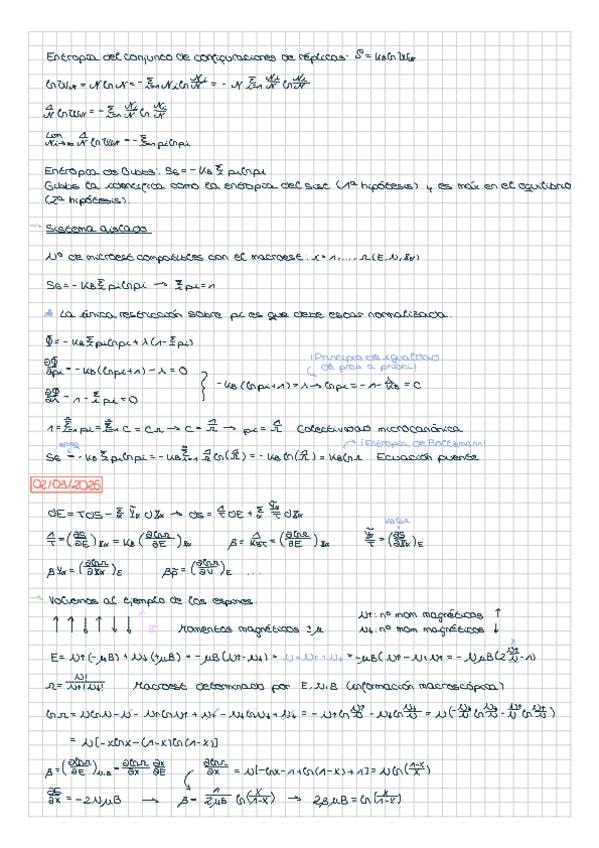 Entropía del conjunto de configuraciones de réplicas: S = k_B ln W_N
ln W_N = N ln N = - Σ_{i=1} N_i ln N_i/N = - N Σ_{i=1} N_i/N ln N_i/N
1/N ln W_N = - Σ_{i=1} N_i/N ln N_i/N
lim_{N_i→∞} 1/N ln W_N = - Σ_{i=1} p_i ln p_i
Entropía de Gibbs: S_G = - k_B Σ p_i ln p_i
Gibbs la identifica como la entropía del sist (1ª hipótesis) y es máx en el equilibrio
(2ª hipótesis).
→ Sistema aislado
Nº de microest compatibles con el macroest. i = 1, ..., Ω(E, N, X_α)
S_G = - k_B Σ_i p_i ln p_i → Σ_i p_i = 1
* La única restricción sobre p_i es que debe estar normalizada.
Φ = - k_B Σ_i p_i ln p_i + λ(1 - Σ_i p_i)
¡Principio de igualdad
de prob a priori!
∂Φ/∂p_i = - k_B (ln p_i + 1) - λ = 0
- k_B (ln p_i + 1) = λ → ln p_i = -1 - λ/k_B = C
∂Φ/∂λ = 1 - Σ_i p_i = 0
1 = Σ_{i=1}^Ω p_i = Σ_{i=1}^Ω C = CΩ → C = 1/Ω → p_i = 1/Ω Colectividad microcanónica
¡Entropía de Boltzmann!
S_G = - k_B Σ p_i ln p_i = - k_B Σ_{i=1}^Ω 1/Ω ln(1/Ω) = - k_B ln(1/Ω) = k_B ln Ω Ecuación puente
02/03/2026
dE = TdS - Σ_α Y_α dX_α → dS = 1/T dE + Σ_α Y_α/T dX_α
k_B ln Ω
1/T = (∂S/∂E)_{X_α} = k_B (∂lnΩ/∂E)_{X_α} β = 1/k_BT = (∂lnΩ/∂E)_{X_α} Y_α/T = (∂S/∂X_α)_E
βY_α = (∂lnΩ/∂X_α)_E βp = (∂lnΩ/∂V)_E ...
→ Volvemos al ejemplo de los espines
↑ ↑ ↓ ↑ ↓ ↓ Momentos magnéticos ±μ
N↑: nº mom magnéticos ↑
N↓: nº mom magnéticos ↓
E = N↑(-μB) + N↓(+μB) = - μB(N↑ - N↓) = N = N↑ + N↓ = - μB(N↑ - N + N↑) = - NμB(2 N↑/N - 1)
Ω = N!/(N↑! N↓!) Macroest determinado por E, N, B (información macroscópica)
ln Ω = N ln N - N - N↑ ln N↑ + N↑ - N↓ ln N↓ + N↓ = - N↑ ln N↑/N - N↓ ln N↓/N = N(- N↓/N ln N↓/N - N↑/N ln N↑/N)
= N[-x ln x - (1-x) ln(1-x)]
β = (∂lnΩ/∂E)_{N,B} = ∂lnΩ/∂x ∂x/∂E ∂lnΩ/∂x = N[-ln x - 1 + ln(1-x) + 1] = N ln((1-x)/x)
∂E/∂x = - 2NμB → β = 1/(2μB) ln(x/(1-x)) → 2βμB = ln(x/(1-x))